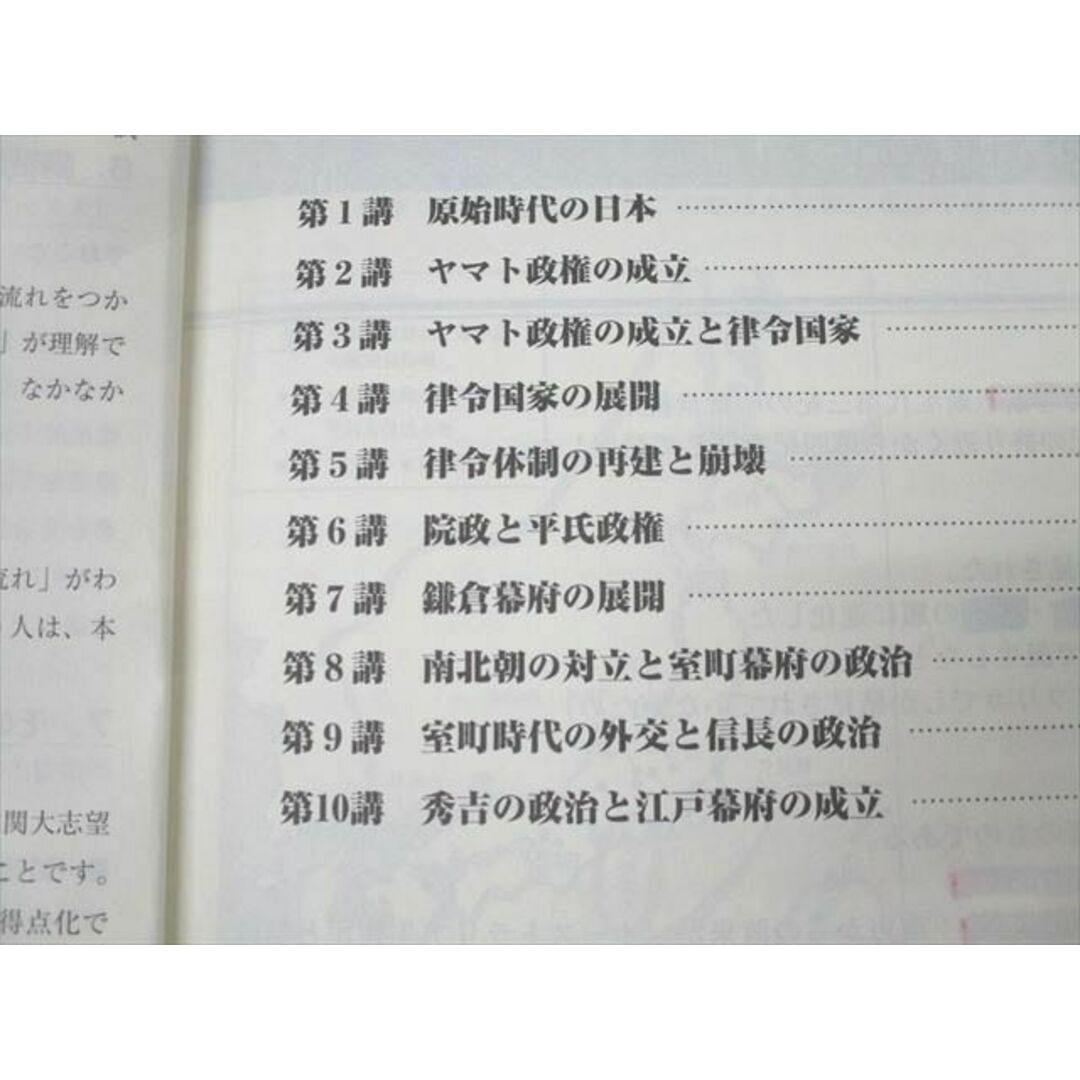 第1講 原始時代の日本
第2講 ヤマト政権の成立
第3講 ヤマト政権の成立と律令国家
第4講 律令国家の展開
第5講 律令体制の再建と崩壊
第6講 院政と平氏政権
第7講 鎌倉幕府の展開
第8講 南北朝の対立と室町幕府の政治
第9講 室町時代の外交と信長の政治
第10講 秀吉の政治と江戸幕府の成立
流れをつか
」が理解で
なかなか
流れ」がわ
人は、本
関大志望
ことです。
得点化で